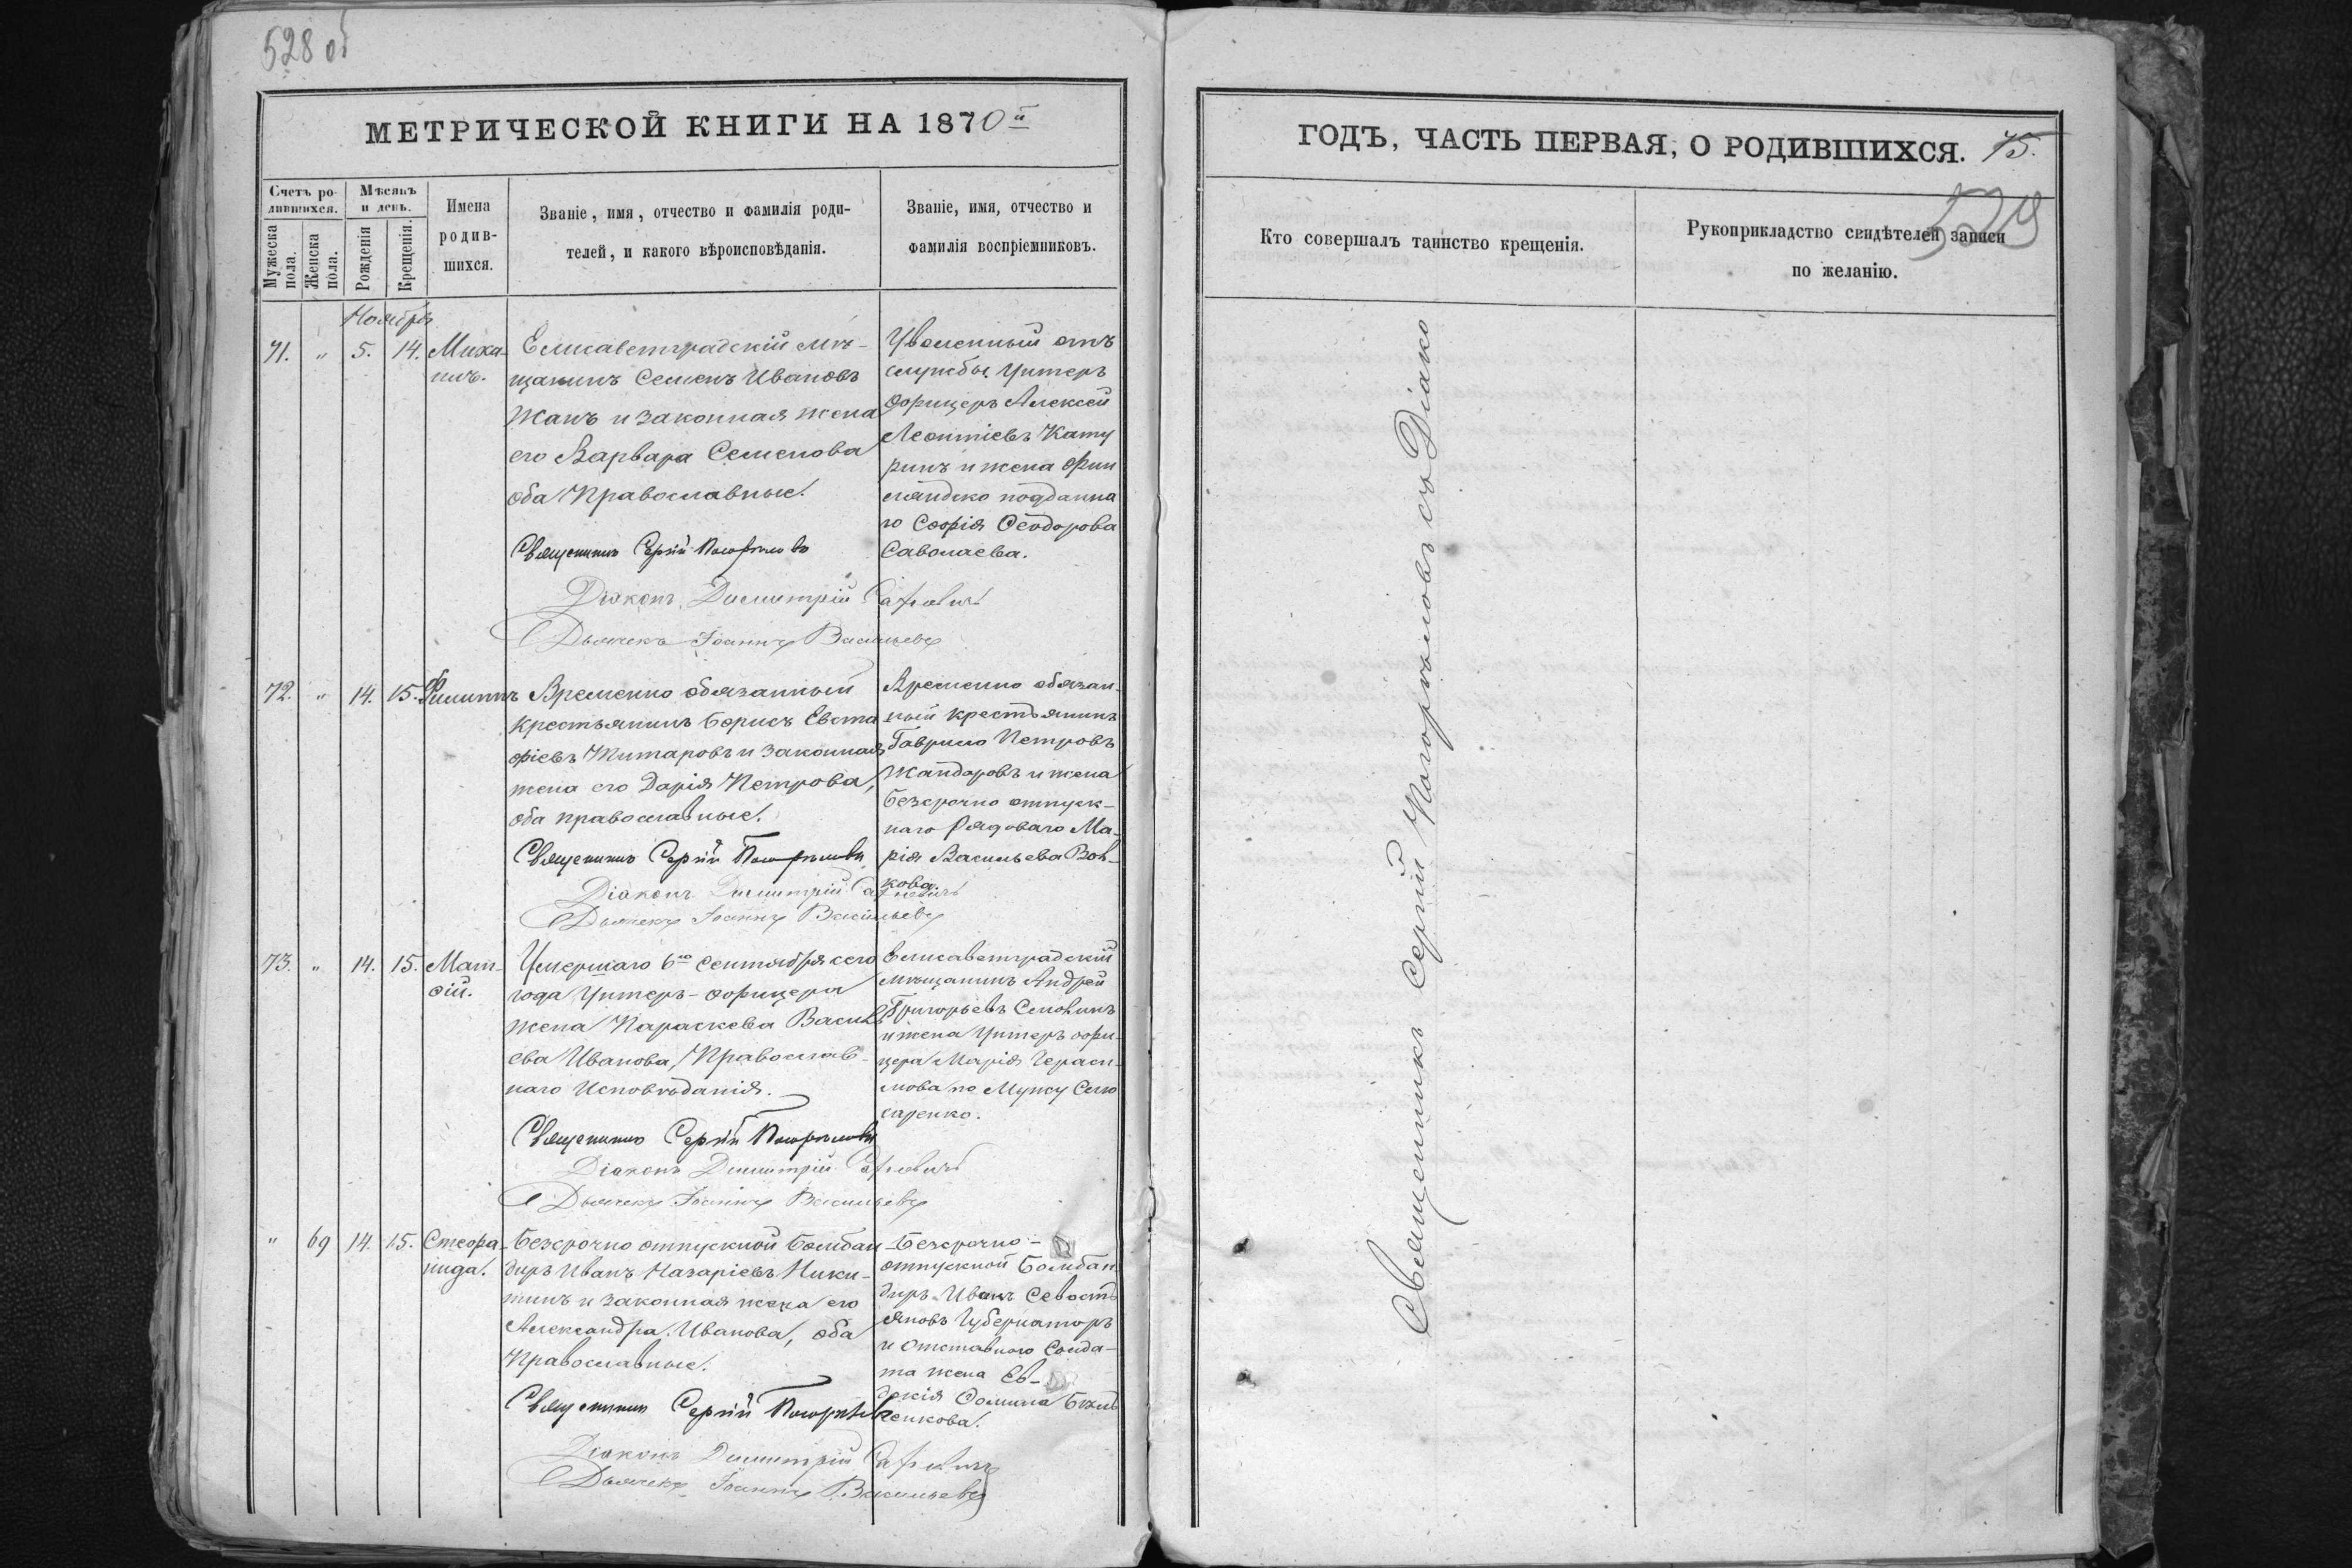 528 об
МЕТРИЧЕСКОЙ КНИГИ НА 1870й
Счетъ ро-
дившихся.
Мужеска пола.
Женска пола.
Мѣсяцъ
и день.
Рожденія
Крещенія.
Имена
родив-
шихся.
Званіе, имя, отчество и фамилія роди-
телей, и какого вѣроисповѣданія.
Званіе, имя, отчество и
фамилія воспріемниковъ.
Ноября
71. " 5. 14. Миха-
илъ.
Елисаветградскій мѣ-
щанинъ Семенъ Ивановъ
Жанъ и законная жена
его Варвара Семенова
оба Православные.
Священникъ Сергій Погорѣловъ
Діаконъ Димитрій
Дьячекъ Іоаннъ Васильевъ
Уволенный отъ
службы Унтеръ
офицеръ Алексей
Леонтіевъ Кату
ринъ и жена Фин
ляндско подданна
го Софія Ѳеодорова
Саволаева.
72. " 14. 15. Филиппъ
Временно обязанный
крестьянинъ Борисъ Евста
фіевъ Житаровъ и законная
жена его Дарія Петрова,
оба православные.
Священникъ Сергій Погорѣловъ
Діаконъ Димитрій
Дьячекъ Іоаннъ Васильевъ
Временно обязан-
ный крестьянинъ
Гаврило Петровъ
Жандаровъ и жена
безсрочно отпуск-
наго Рядоваго Ма-
рія Васильева Вов-
кова.
73. " 14. 15. Мат-
ѳій.
Умершаго 6го Сентября сего
года Унтеръ-офицера
жена Параскева Василь
ева Иванова, Православ-
наго Исповѣданія.
Священникъ Сергій Погорѣловъ
Діаконъ Димитрій
Дьячекъ Іоаннъ Васильевъ
Елисаветградскій
мѣщанинъ Андрей
Григорьевъ
и жена Унтеръ офи-
цера Марія Гераси-
мова по Мужу Слю
саренко.
" 69 14. 15. Стефа-
нида.
Безсрочно отпускной Бомбан-
диръ Иванъ Назаріевъ Ники-
тинъ и законная жена его
Александра Иванова, оба
Православные.
Священникъ Сергій Погорѣловъ
Діаконъ Димитрій
Дьячекъ Іоаннъ Васильевъ
Безсрочно-
отпускной Бомбан
диръ Иванъ Севость
яновъ Губернаторъ
и отставного Солда-
та жена Ев-
докія Ѳомина
ГОДЪ, ЧАСТЬ ПЕРВАЯ, О РОДИВШИХСЯ. 75.
529
Кто совершалъ таинство крещенія.
Рукоприкладство свидѣтелей записи
по желанію.
Священникъ Сергій Погорѣловъ съ Діако